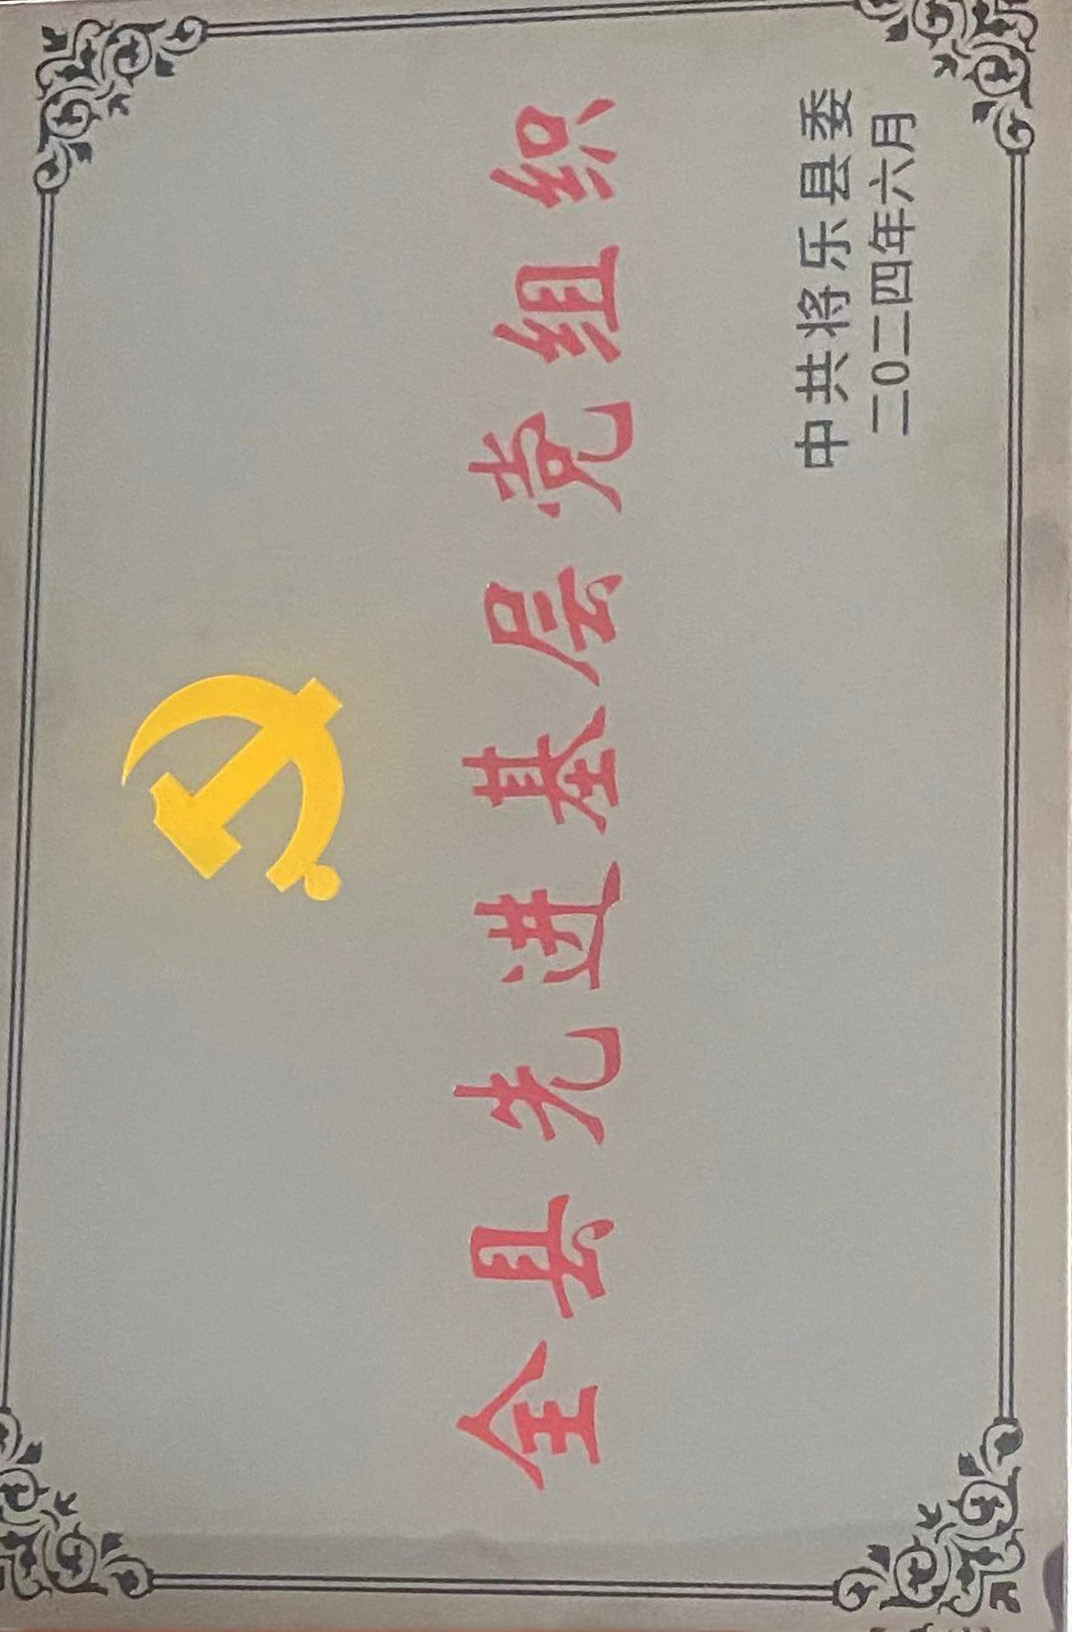 全县先进基层党组织
中共将乐县委
二0二四年六月